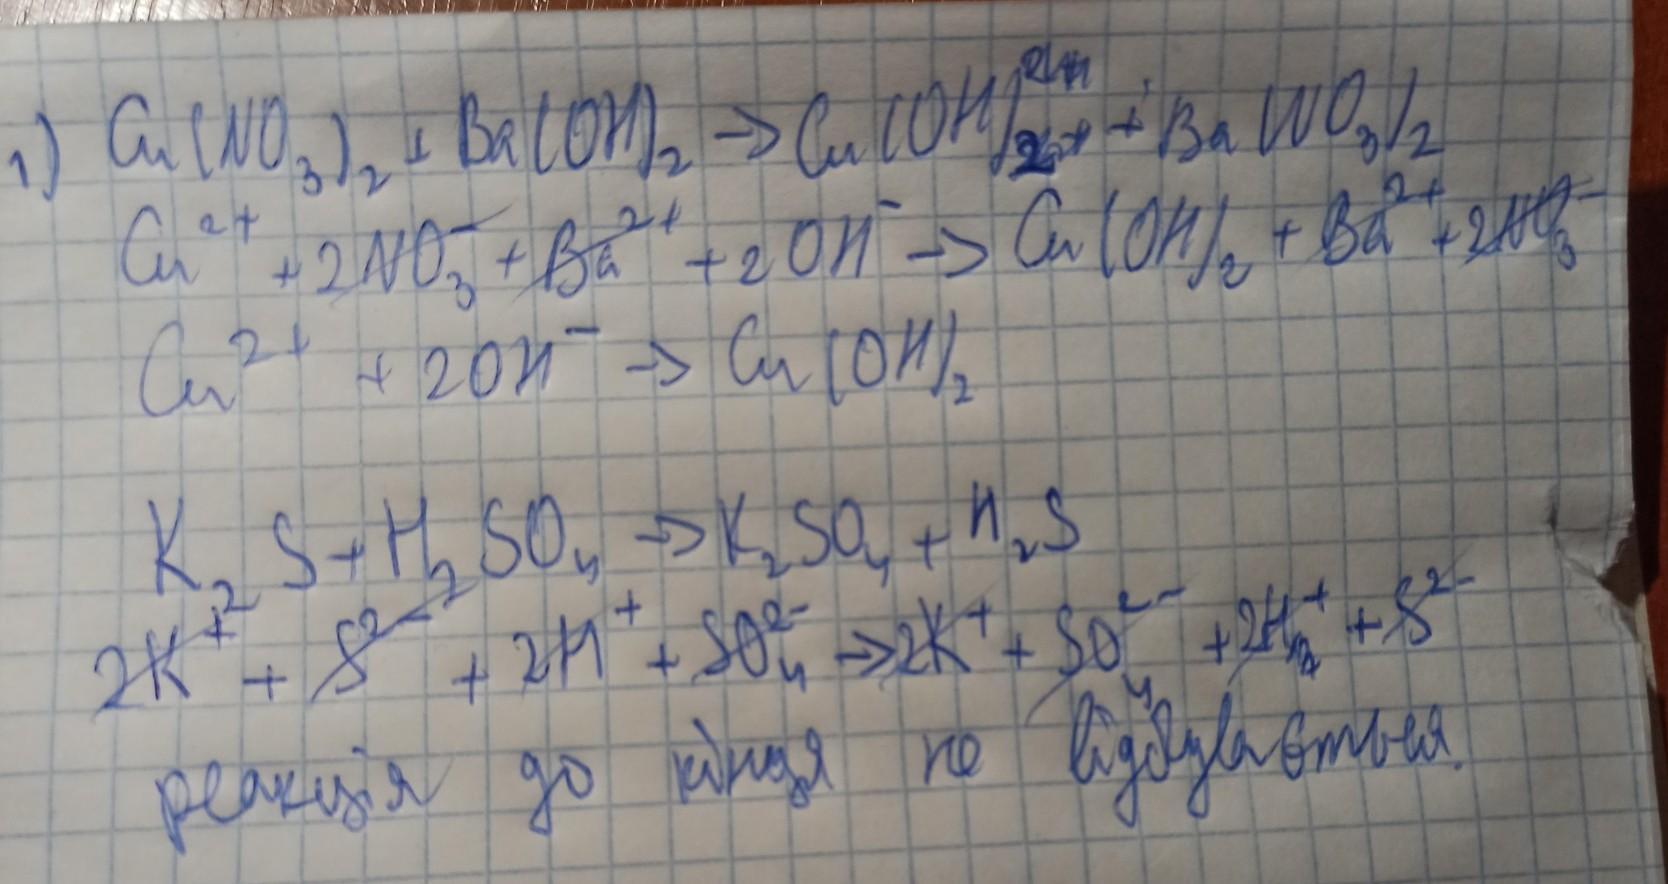 1) Cu(NO₃)₂ + Ba(OH)₂ → Cu(OH)₂ + Ba(NO₃)₂
Cu²⁺ + 2NO₃⁻ + Ba²⁺ + 2OH⁻ → Cu(OH)₂ + Ba²⁺ + 2NO₃⁻
Cu²⁺ + 2OH⁻ → Cu(OH)₂
K₂S + H₂SO₄ → K₂SO₄ + H₂S
2K⁺ + S²⁻ + 2H⁺ + SO₄²⁻ → 2K⁺ + SO₄²⁻ + 2H⁺ + S²⁻
реакція до кінця не відбувається.